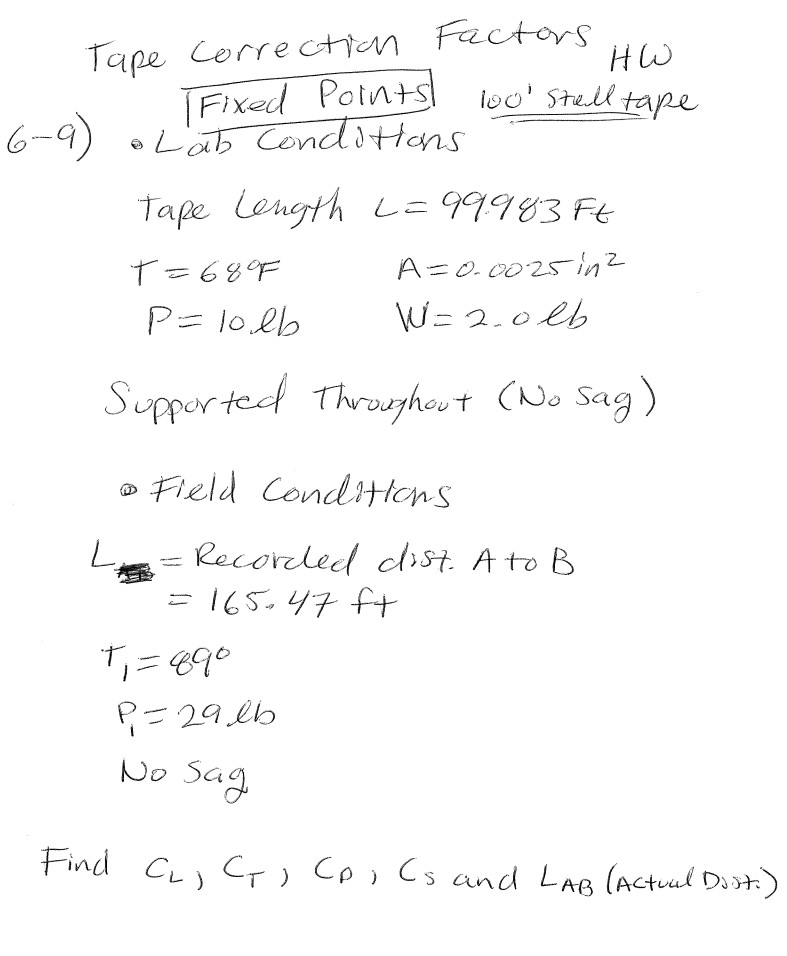 Tape Correction Factors HW
Fixed Points 100' Stell tape
6-9) • Lab Conditions
Tape Length L = 99.983 Ft
T = 68°F A = 0.0025 in²
P = 10 lb W = 2.0 lb
Supported Throughout (No Sag)
• Field Conditions
L = Recorded dist. A to B
= 165.47 ft
T₁ = 89°
P₁ = 29 lb
No Sag
Find C_L, C_T, C_P, C_S and L_AB (Actual Dist.)